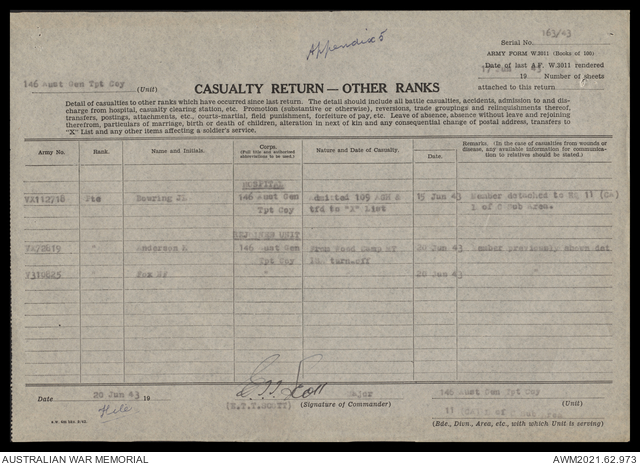 Appendix 5
Serial No. 163/43
ARMY FORM W.3011 (Books of 100)
Date of last A.F. W.3011 rendered
17 Jun 43
19 Number of sheets
attached to this return
146 Aust Gen Tpt Coy (Unit)
CASUALTY RETURN — OTHER RANKS
Detail of casualties to other ranks which have occurred since last return. The detail should include all battle casualties, accidents, admission to and dis-
charge from hospital, casualty clearing station, etc. Promotion (substantive or otherwise), reversions, trade groupings and relinquishments thereof,
transfers, postings, attachments, etc., courts-martial, field punishment, forfeiture of pay, etc. Leave of absence, absence without leave and rejoining
therefrom, particulars of marriage, birth or death of children, alteration in next of kin and any consequential change of postal address, transfers to
"X" List and any other items affecting a soldier's service.
Army No. Rank. Name and Initials. Corps. (Full title and authorized abbreviations to be used.) Nature and Date of Casualty. Date. Remarks. (In the case of casualties from wounds or disease, any available information for communication to relatives should be stated.)
HOSPITAL
VX112718 Pte Bowring JL 146 Aust Gen Admitted 109 15 Jun 43 Member detached to 11
Tpt Coy tfd to "X" List L of C Sub Area.
REJOINED UNIT
" Anderson 146 Aust Gen From Road Camp 20 Jun 43 Member previously shown det
Tpt Coy turn.off
V310025 Fox " 20 Jun 43 "
Date 20 Jun 43 19
E T Scott Major
(E.T.Y.SCOTT) (Signature of Commander)
146 Aust Gen Tpt Coy (Unit)
11 L of C Sub Area
(Bde., Divn., Area, etc., with which Unit is serving)
File
AUSTRALIAN WAR MEMORIAL
AWM2021.62.973